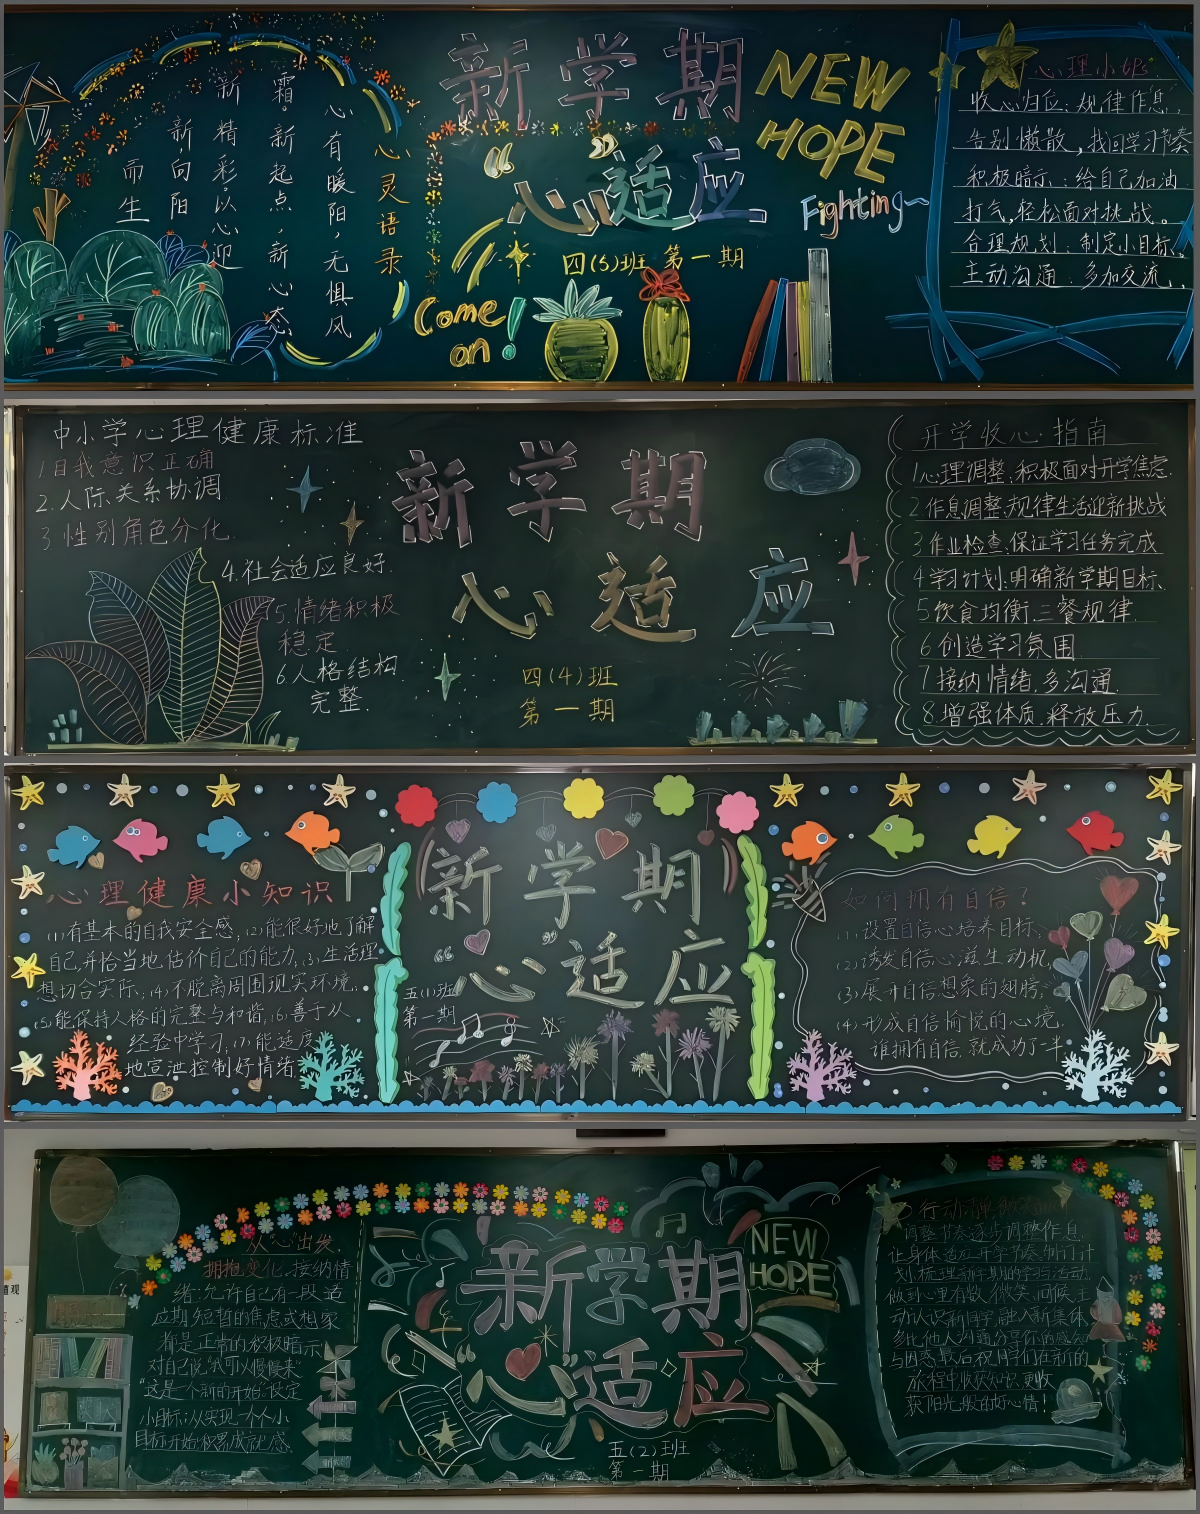 新学期
“心”适应
四(5)班 第一期
NEW
HOPE
Fighting~
Come
on!
心灵语录
心有暖阳,无惧风
霜。新起点,新心态
新精彩。以心迎
新向阳
而生
心理小妙
收心归位:规律作息,
告别懒散,找回学习节奏
积极暗示:给自己加油
打气,轻松面对挑战。
合理规划:制定小目标。
主动沟通:多加交流,
中小学心理健康标准
1自我意识正确
2.人际关系协调
3性别角色分化
4.社会适应良好.
5.情绪积极
稳定
6人格结构
完整.
新学期
心适应
四(4)班
第一期
开学收心指南
1心理调整:积极面对开学焦虑.
2作息调整:规律生活迎新挑战
3作业检查:保证学习任务完成
4学习计划:明确新学期目标、
5饮食均衡三餐规律.
6创造学习氛围
7接纳情绪.多沟通
8.增强体质.释放压力.
心理健康小知识
(1)有基本的自我安全感,(2)能很好地了解
自己,并恰当地估价自己的能力,(3)生活理
想切合实际,(4)不脱离周围现实环境.
(5)能保持人格的完整与和谐,(6)善于从
经验中学习,(7)能适度
地宣泄控制好情绪
新学期
“心”适应
五(1)班
第一期
如何拥有自信?
(1)设置自信心培养目标,
(2)诱发自信心滋生动机,
(3)展开自信想象的翅膀,
(4)形成自信愉悦的心境.
谁拥有自信,就成功了一半.
从“心”出发,
拥抱变化.接纳情
绪:允许自己有一段适
应期,短暂的焦虑或想家
都是正常的积极暗示
对自己说“我可以慢慢来”
“这是一个新的开始”设定
小目标:从实现一个个小
目标开始积累成就感.
新学期
“心”适应
NEW
HOPE
五(2)班
第一期
行动
调整节奏:逐步调整作息.
让身体适应开学节奏,制订计
划,梳理新学期的学习活动,
做到心里有数,微笑,问候,主
动认识新同学,融入新集体,
多比他人沟通分享你的感知
与困惑.最后祝同学们在新的
旅程中收获知识,更收
获阳光般的好心情!